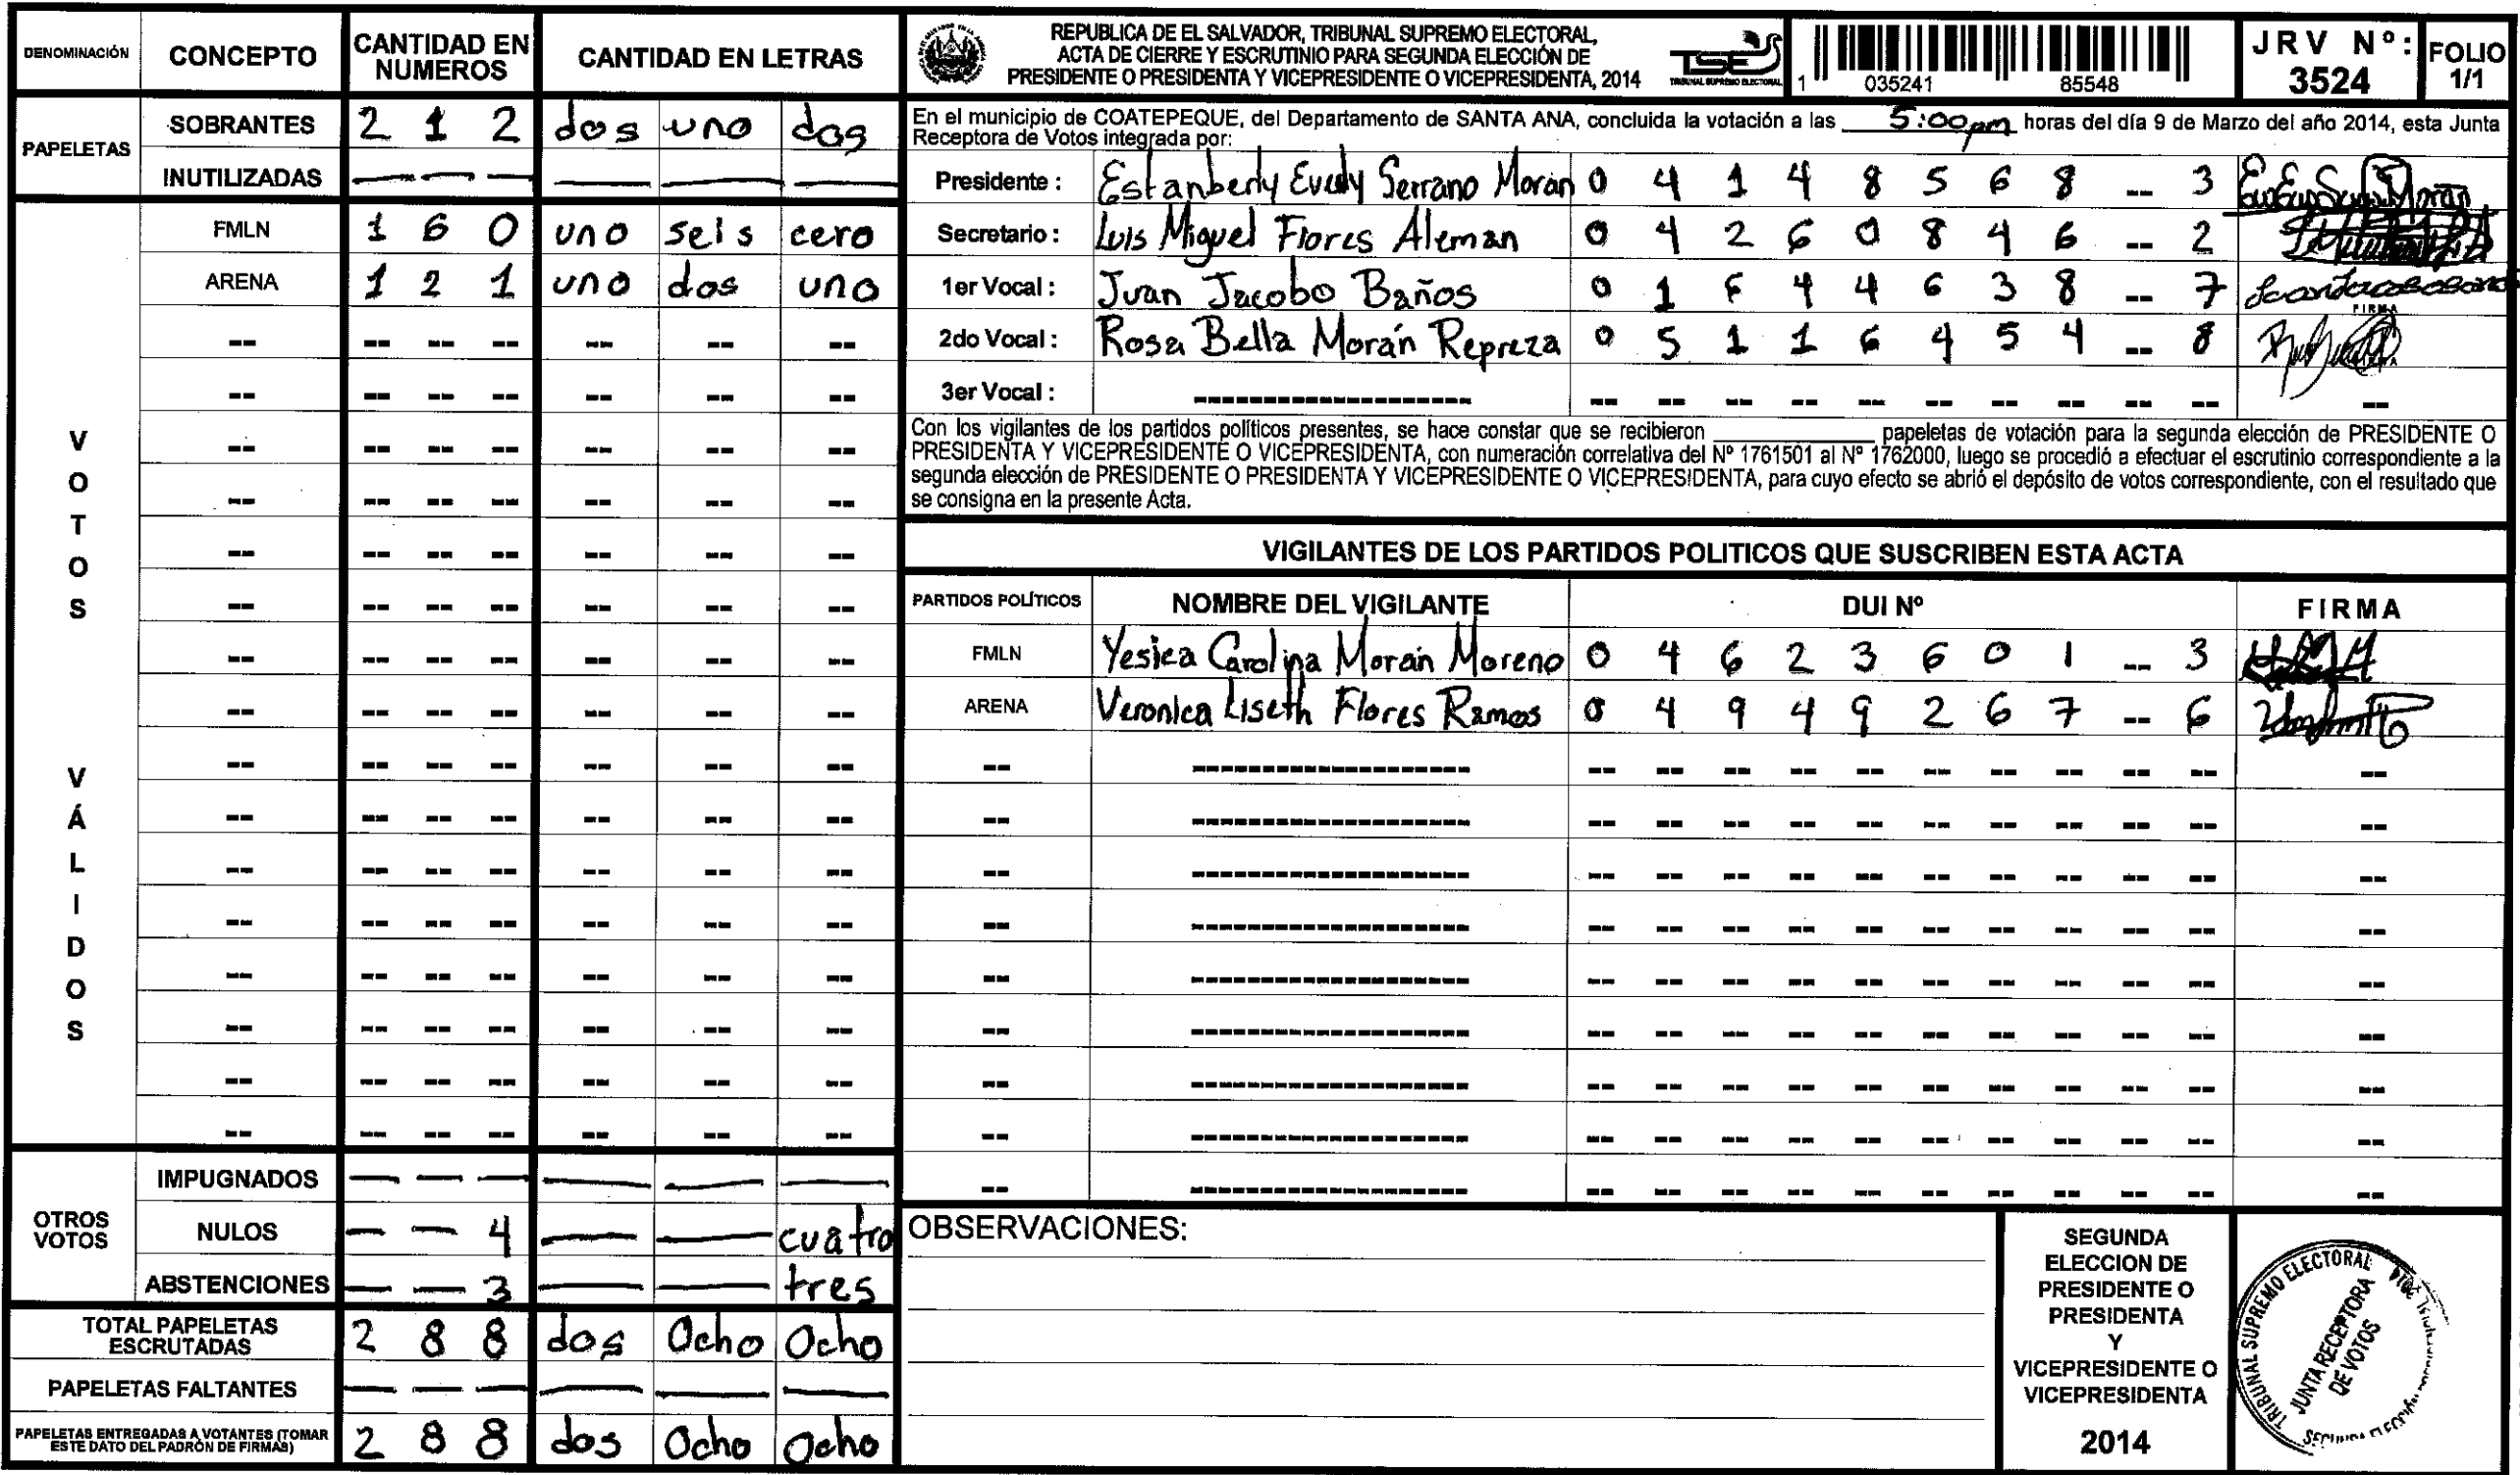 DENOMINACIÓN CONCEPTO CANTIDAD EN NUMEROS CANTIDAD EN LETRAS
PAPELETAS
SOBRANTES 2 1 2 dos uno dos
INUTILIZADAS — — — — — —
VOTOS VÁLIDOS
FMLN 1 6 0 uno seis cero
ARENA 1 2 1 uno dos uno
OTROS VOTOS
IMPUGNADOS — — — — — —
NULOS — — 4 — — cuatro
ABSTENCIONES — — 3 — — tres
TOTAL PAPELETAS ESCRUTADAS 2 8 8 dos Ocho Ocho
PAPELETAS FALTANTES — — — — — —
PAPELETAS ENTREGADAS A VOTANTES (TOMAR ESTE DATO DEL PADRÓN DE FIRMAS) 2 8 8 dos Ocho Ocho
REPUBLICA DE EL SALVADOR, TRIBUNAL SUPREMO ELECTORAL,
ACTA DE CIERRE Y ESCRUTINIO PARA SEGUNDA ELECCIÓN DE
PRESIDENTE O PRESIDENTA Y VICEPRESIDENTE O VICEPRESIDENTA, 2014
TSE
TRIBUNAL SUPREMO ELECTORAL
1 035241 85548
JRV Nº: 3524
FOLIO 1/1
En el municipio de COATEPEQUE, del Departamento de SANTA ANA, concluida la votación a las 5:00 pm horas del día 9 de Marzo del año 2014, esta Junta
Receptora de Votos integrada por:
Presidente : Estanberly Evedy Serrano Morán 0 4 1 4 8 5 6 8 -- 3
Secretario : Luis Miguel Flores Aleman 0 4 2 6 0 8 4 6 -- 2
1er Vocal : Juan Jacobo Baños 0 1 6 4 4 6 3 8 -- 7
FIRMA
2do Vocal : Rosa Bella Morán Repreza 0 5 1 1 6 4 5 4 -- 8
3er Vocal : -- -- -- -- -- -- -- -- -- -- --
Con los vigilantes de los partidos políticos presentes, se hace constar que se recibieron ____________ papeletas de votación para la segunda elección de PRESIDENTE O
PRESIDENTA Y VICEPRESIDENTE O VICEPRESIDENTA, con numeración correlativa del Nº 1761501 al Nº 1762000, luego se procedió a efectuar el escrutinio correspondiente a la
segunda elección de PRESIDENTE O PRESIDENTA Y VICEPRESIDENTE O VICEPRESIDENTA, para cuyo efecto se abrió el depósito de votos correspondiente, con el resultado que
se consigna en la presente Acta.
VIGILANTES DE LOS PARTIDOS POLITICOS QUE SUSCRIBEN ESTA ACTA
PARTIDOS POLÍTICOS NOMBRE DEL VIGILANTE DUI Nº FIRMA
FMLN Yesica Carolina Morán Moreno 0 4 6 2 3 6 0 1 -- 3
ARENA Veronica Liseth Flores Ramos 0 4 9 4 9 2 6 7 -- 6
OBSERVACIONES:
SEGUNDA
ELECCION DE
PRESIDENTE O
PRESIDENTA
Y
VICEPRESIDENTE O
VICEPRESIDENTA
2014
TRIBUNAL SUPREMO ELECTORAL
JUNTA RECEPTORA
DE VOTOS